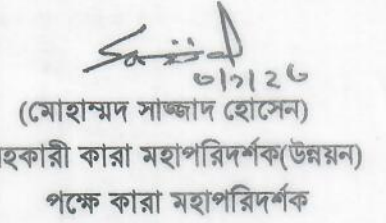 ৩|৭|২৩
(মোহাম্মদ সাজ্জাদ হোসেন)
হকারী কারা মহাপরিদর্শক(উন্নয়ন)
পক্ষে কারা মহাপরিদর্শক